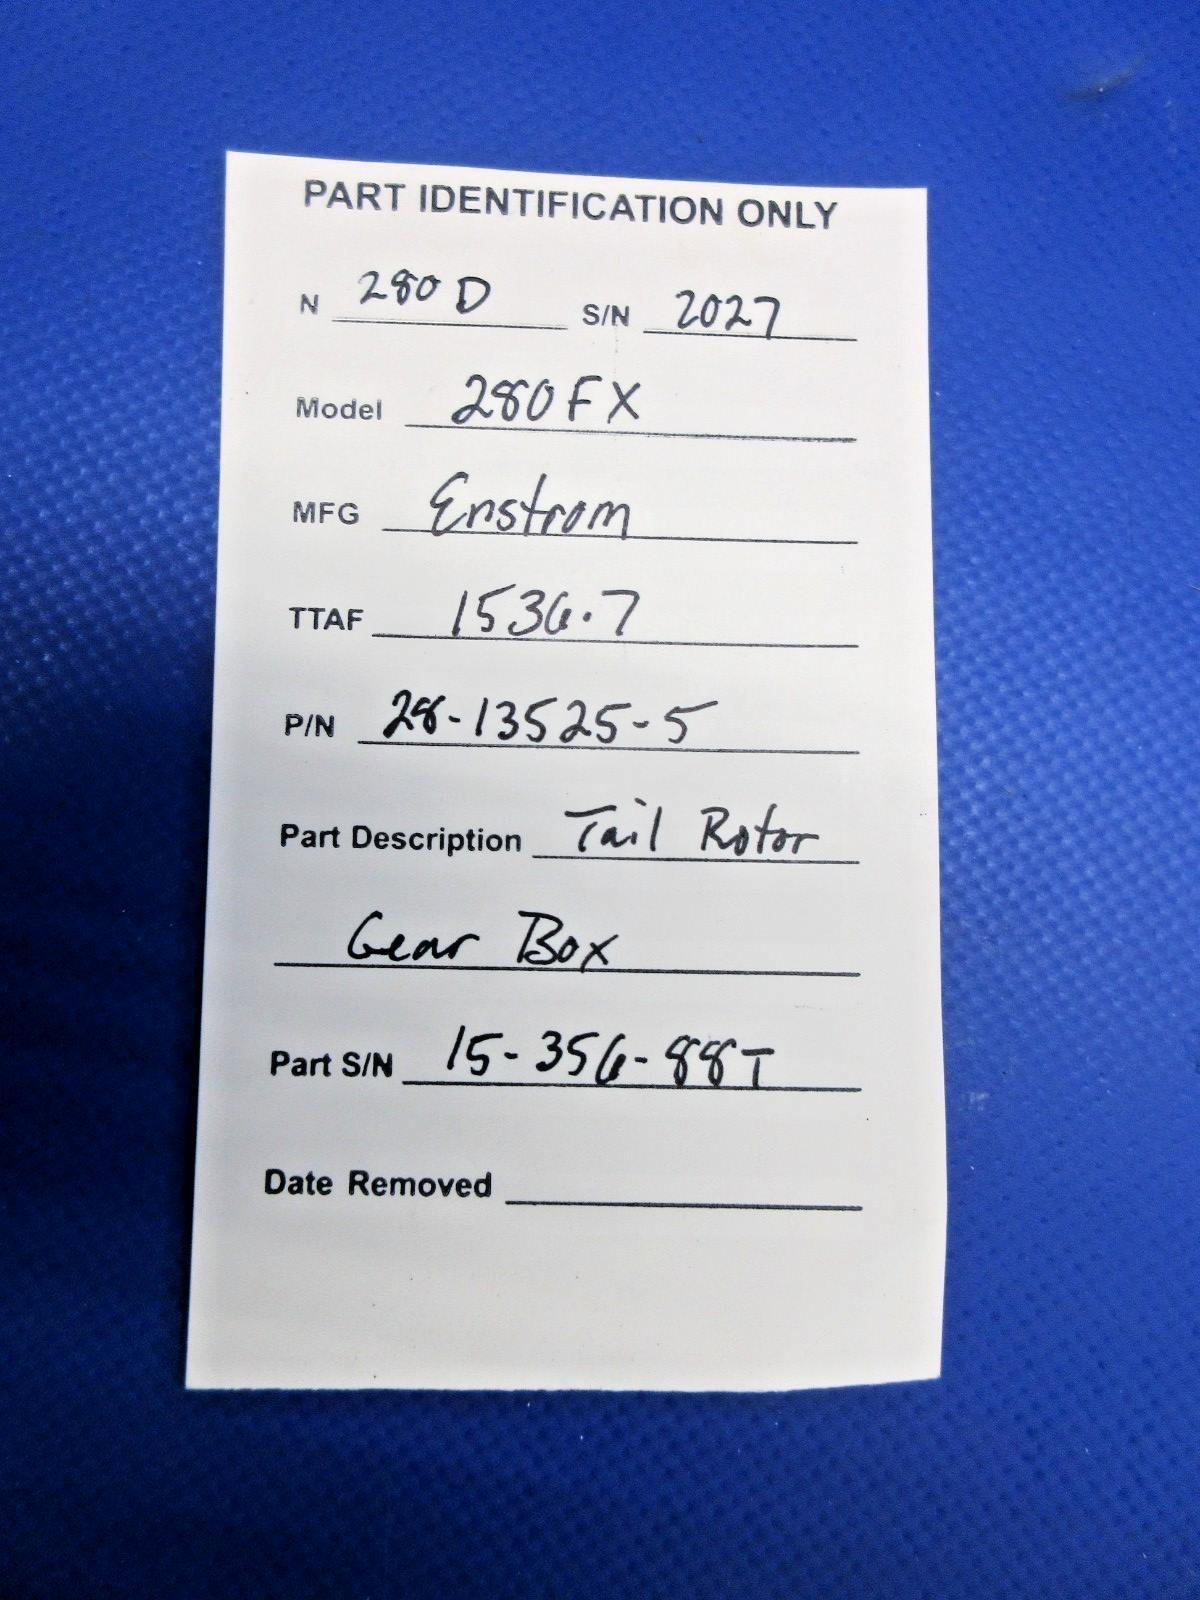 PART IDENTIFICATION ONLY
N 280 D S/N 2027
Model 280FX
MFG Enstrom
TTAF 1536.7
P/N 28-13525-5
Part Description Tail Rotor
Gear Box
Part S/N 15-356-88T
Date Removed